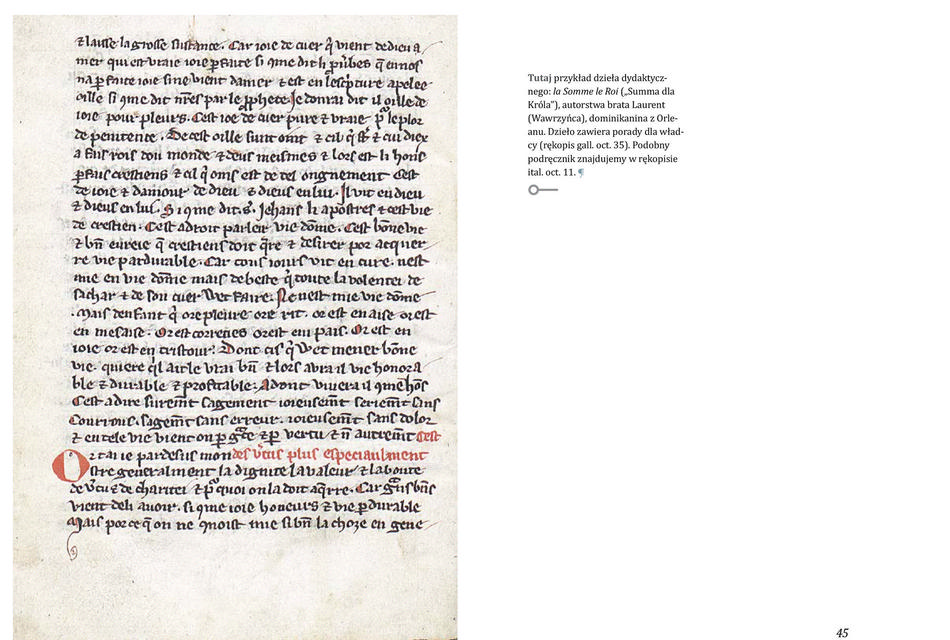 & laisse la grosse sustance. Car ioie de cuer q̄ vient de dieu a
mer qui est vraie ioie p̱faite si
na p̱faite ioie sine vient damer & est en apelee
oille si 9me dit par le Je donrai dit il oille de
ioie pour pleurs. Cest ioe de cuer pure & vraie le plor
de penitence. De cest oille sunt & cil
a fais rois dou monde & deus meismes & lors est li hons
p̱fais crestiens & cil q̄ oins est de tel ongnement Cest
de ioie & damour de dieu & dieus en lui. Il vit en dieu
& dieus en lui. Si 9me dit .S. Jehans li apostres & cest vie
de crestien. Cest a droit parler vie dōme. Cest bōne vie
& bn̄ q̄ crestiens doit q̄re & desirer por acquer
re vie pardurable. Car tous iours vit en cure. nest
mie en vie dōme mais de beste q̄ toute la volentei de
sachar & de son cuer wet faire. Ne nest mie vie dōme
.Mais denfant q̄ ore pleure ore rit. or est en aise or est
en mesaise. Or est correcies or est em pais. Or est en
ioie or est en tristour. Dont cis q̄ wet mener bōne
vie. quiere q̄l ait le vrai bn̄ & lors avra il vie honora
ble & durable & profitable. Adont vivera il 9me hōs
Cest a dire surem̄t sagement ioieusem̄t sens
Courrous. sagem̄t sans erreur. ioieusem̄t sans dolor
& en tele vie vient on p̱ & p̱ vertu & autrem̄t Cest
Or tai ie par desus mon des plus especiaulment
stre generalment la dignite la valeur & la bonte
de & de charitei & quoi on la doit aq̄rre. Car bn̄s
vient de li avoir. si 9me ioie honeurs & vie p̱durable
Mais por ce q̄ on ne 9noist mie si bn̄ la choze en gene
Tutaj przykład dzieła dydaktycz-
nego: la Somme le Roi („Summa dla
Króla”), autorstwa brata Laurent
(Wawrzyńca), dominikanina z Orle-
anu. Dzieło zawiera porady dla wład-
cy (rękopis gall. oct. 35). Podobny
podręcznik znajdujemy w rękopisie
ital. oct. 11. ¶
45